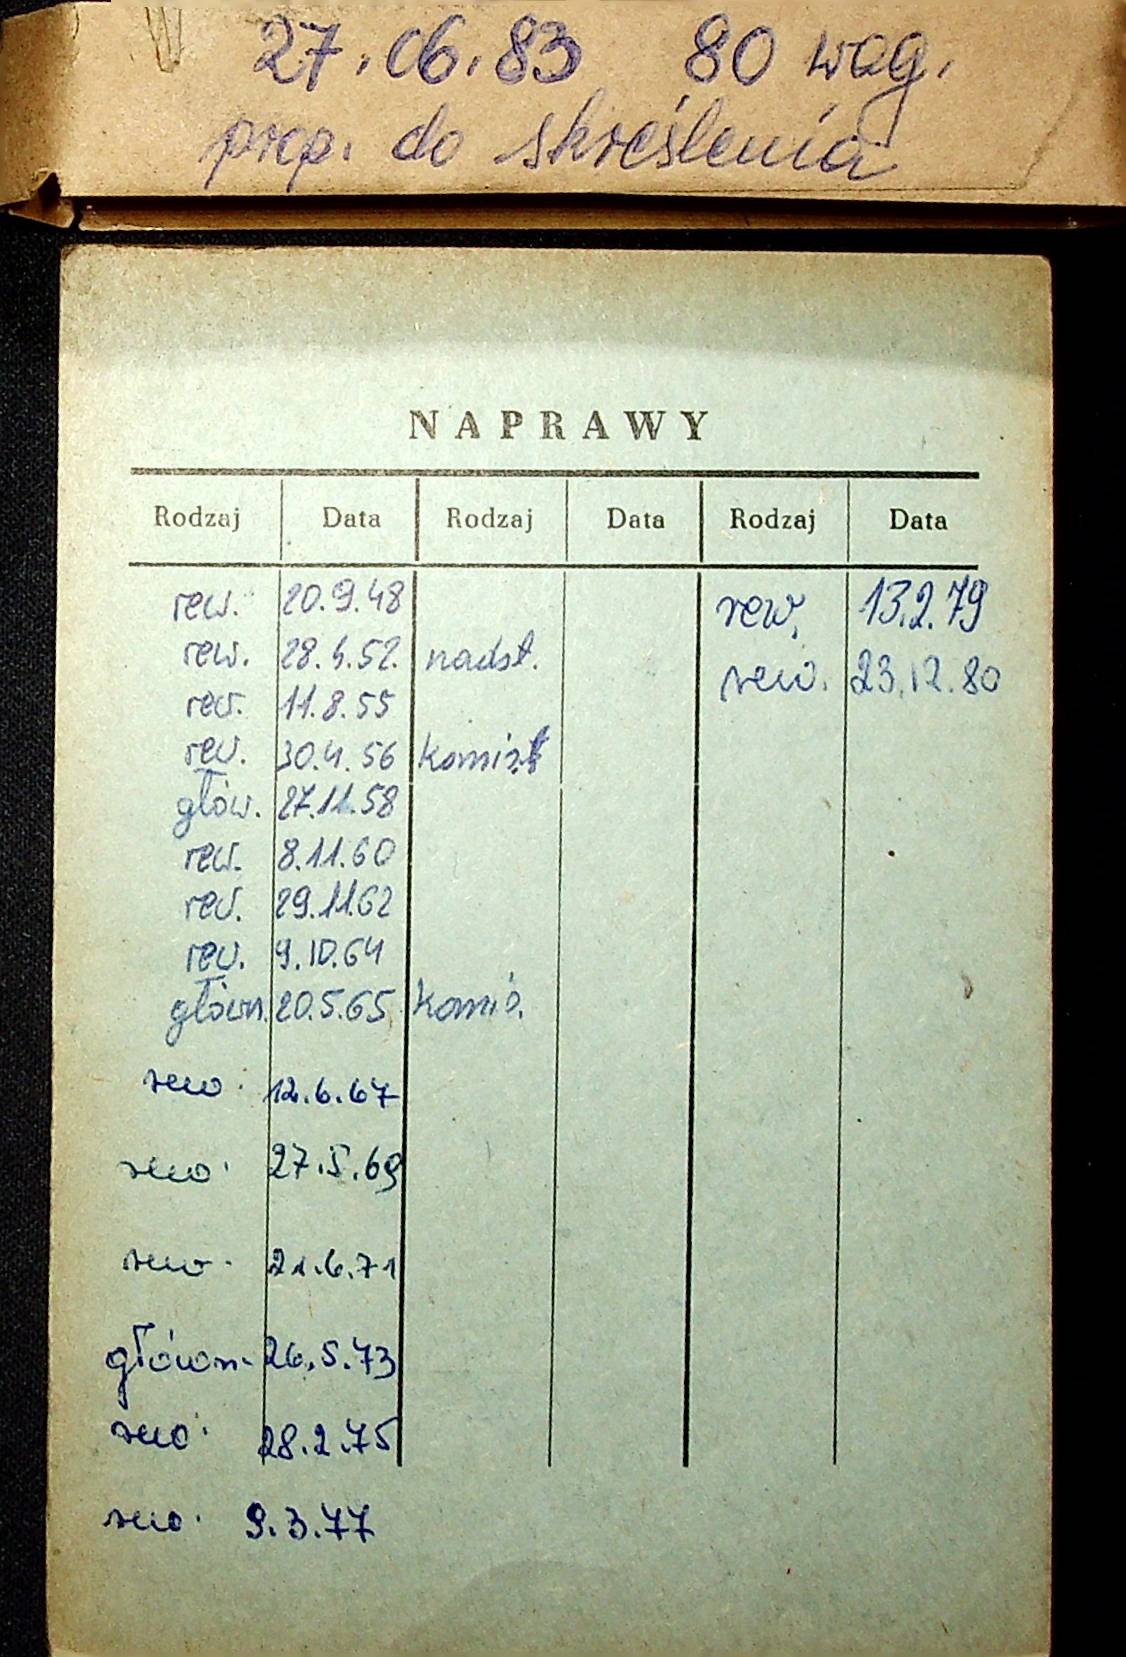 27.06.83 80 wag.
prop. do skreślenia
NAPRAWY
Rodzaj Data Rodzaj Data Rodzaj Data
rew. 20.9.48 rew. 13.2.79
rew. 28.4.52. nadst. rew. 23.12.80
rew. 11.8.55
rew. 30.4.56
głów. 27.11.58
rew. 8.11.60
rew. 29.11.62
rew. 9.10.64
główn. 20.5.65 komis.
rew. 12.6.67
rew. 27.5.69
rew. 21.6.71
główn. 26.5.73
rew. 28.2.75
rew. 9.3.77